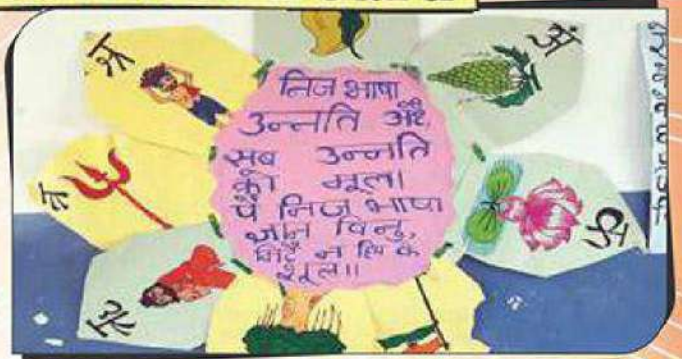 निज भाषा
उन्नति अहै,
सब उन्नति
को मूल।
पै निज भाषा
ज्ञान बिनु,
मिटै न हिय के
शूल॥
अं
त्र